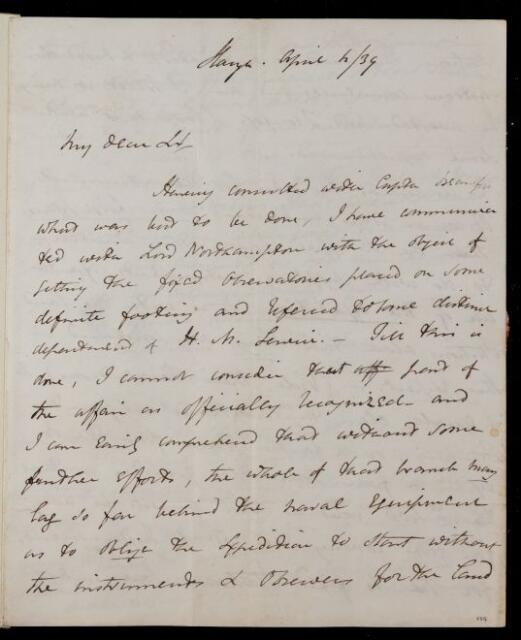 April 4/39
My dear Sir
Having consulted with Captn Beaufort
what was best to be done, I have communica
ted with Lord Northampton with the object of
getting the fixed Observatories placed on some
definite footing and referred to some distinct
department of H. M. Service. – Till this is
done, I cannot consider that part of
the affair as officially recognized – and
I can easily comprehend that without some
further efforts, the whole of that branch may
lag so far behind the naval Equipment
as to oblige the Expedition to start without
the instruments & Observers for the Land